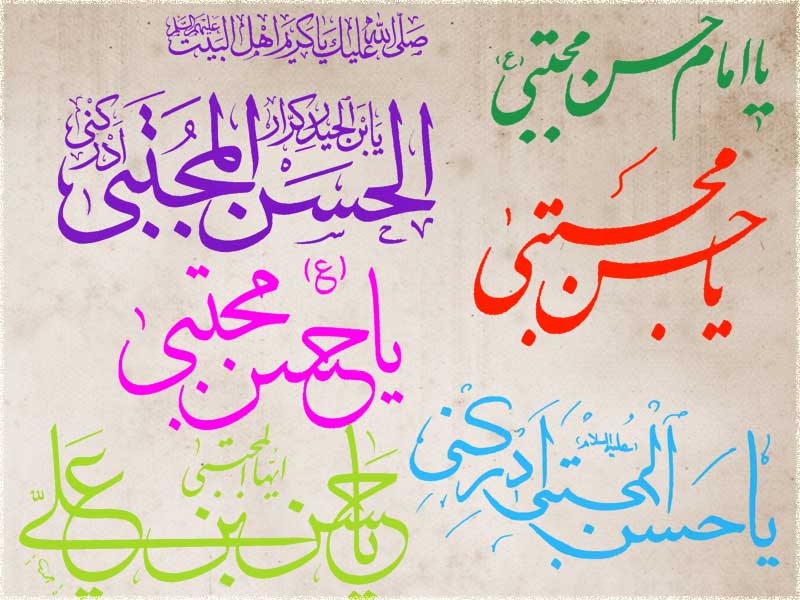 یا امام حسن مجتبی (ع)
صلی الله علیک یا کریم اهل البیت علیهم السلم
یابن الحیدر کرار
الحسن المجتبی ادرکنی
یا حسن مجتبی
یا حسن مجتبی (ع)
یا حسن المجتبی علیه السلام ادرکنی
یا حسن بن علی ایها المجتبی